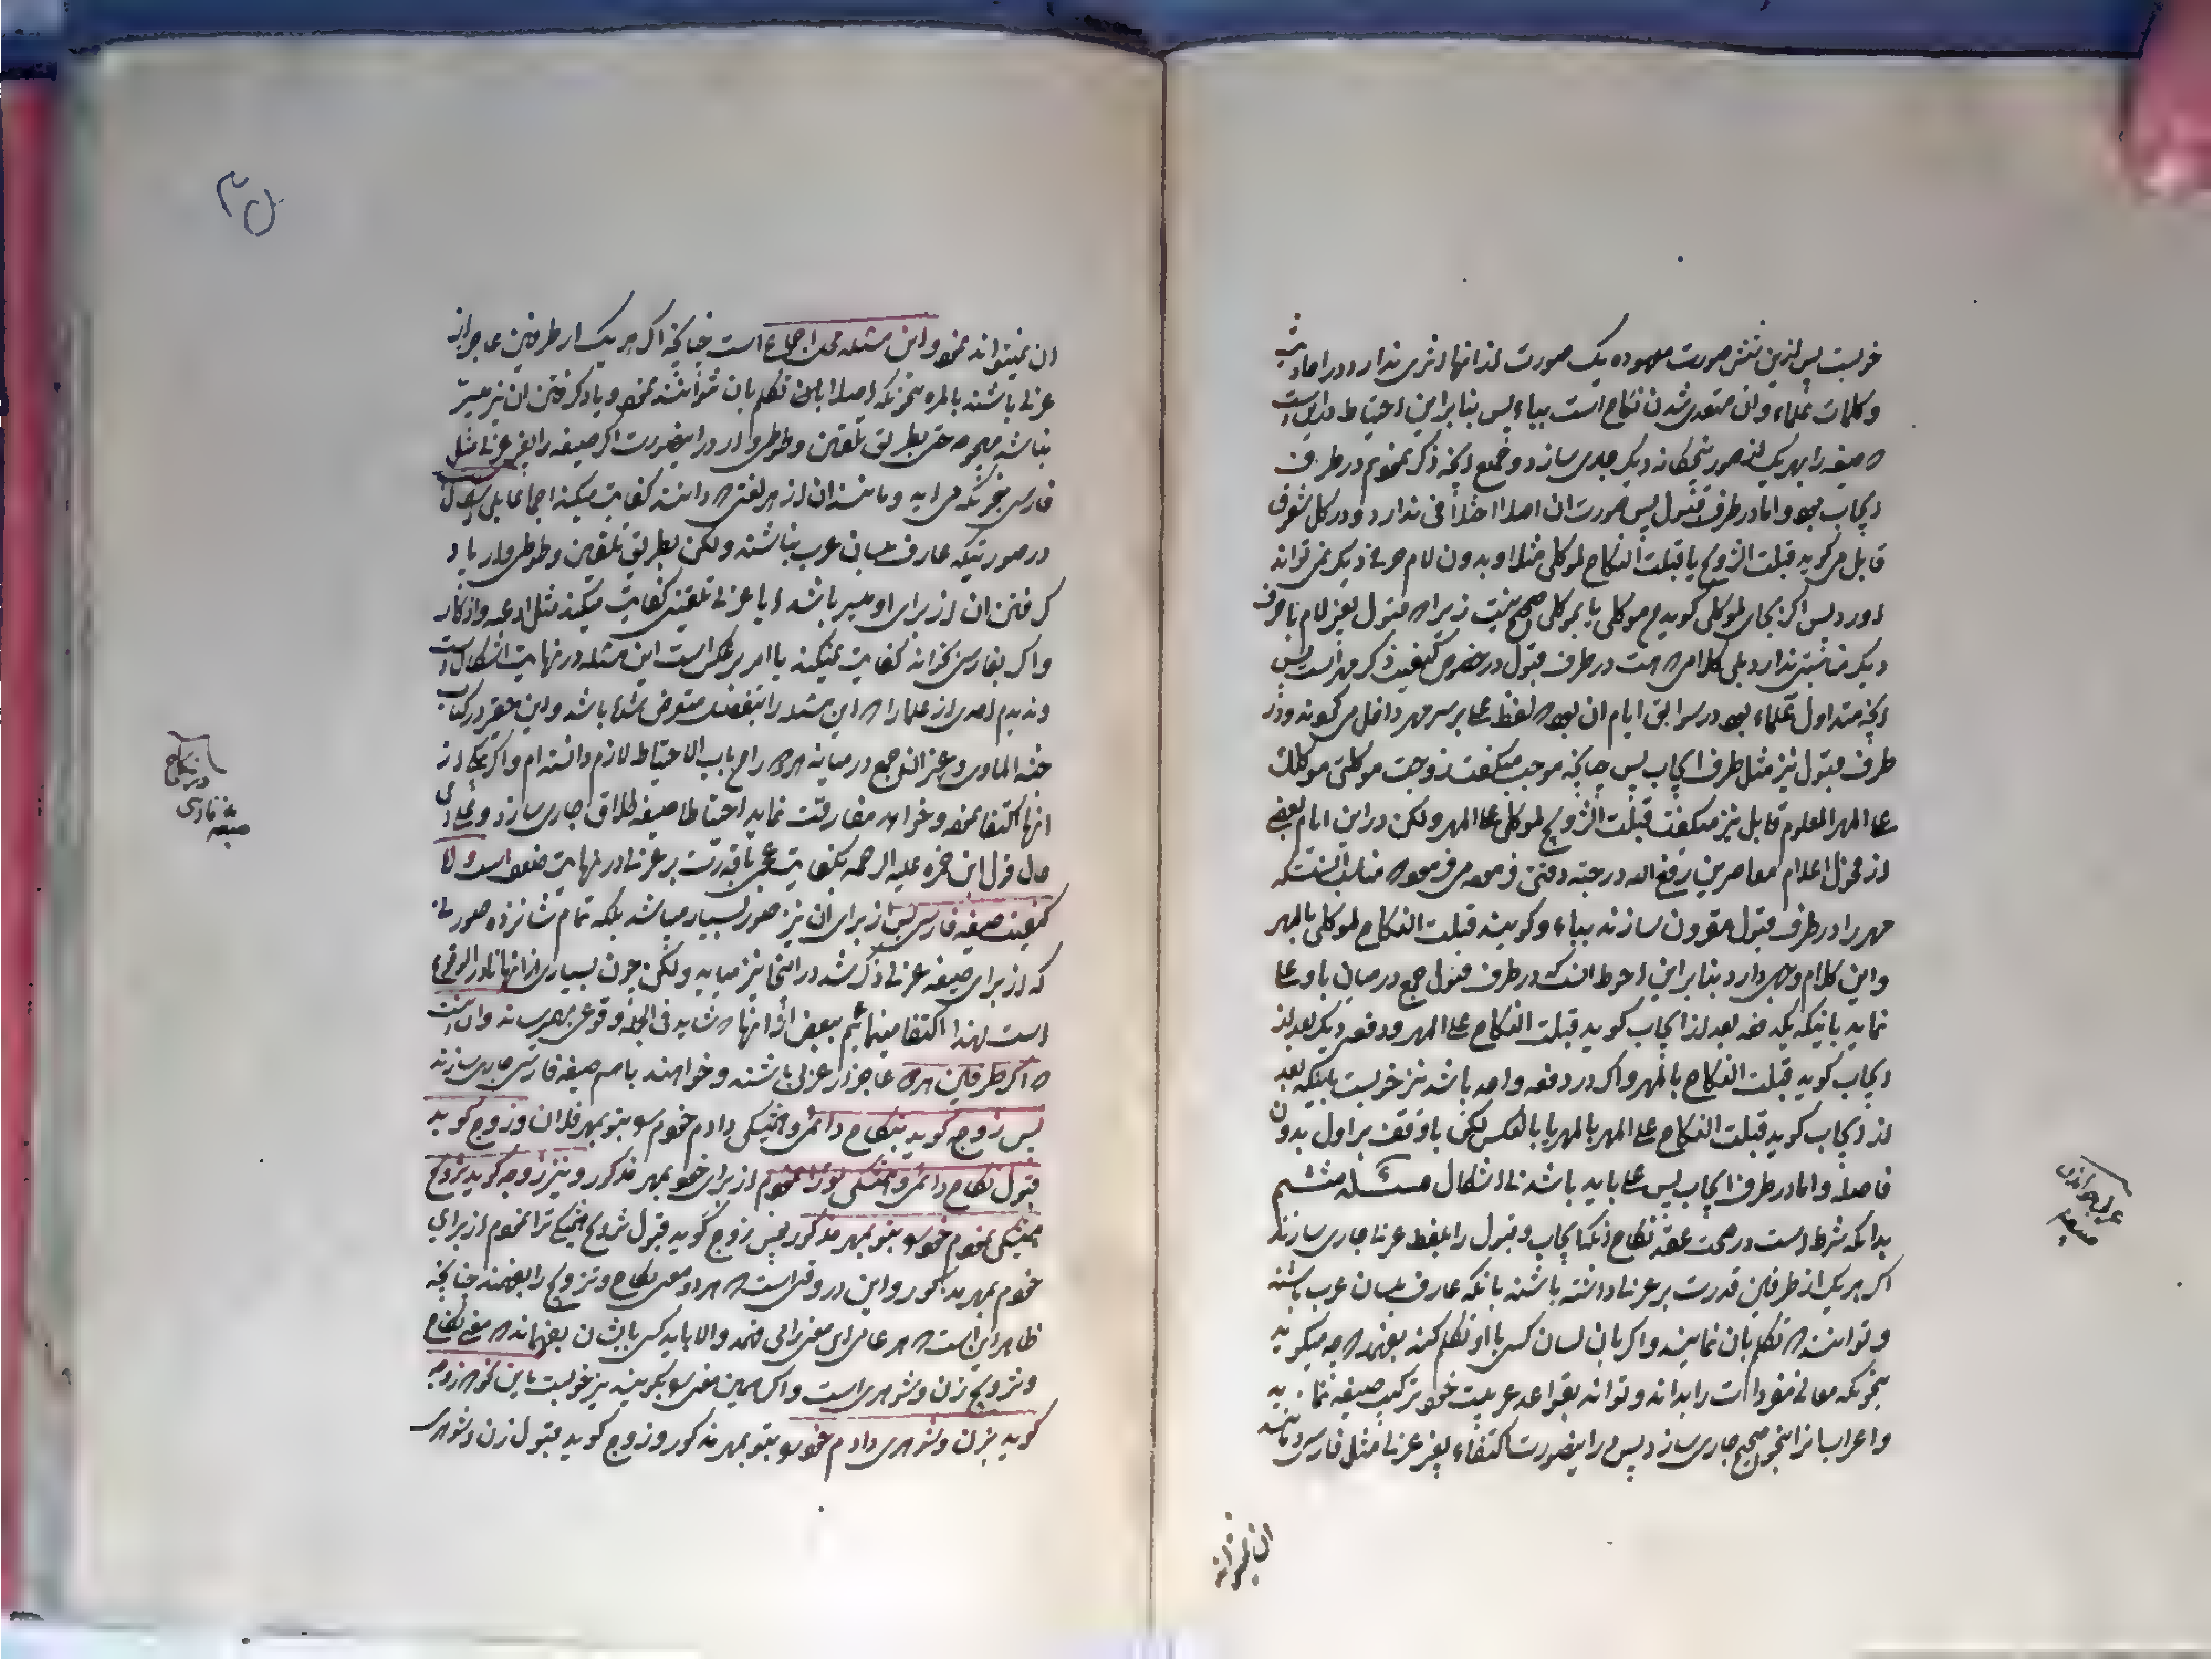 خوبست پس ازین شش صورت معهوده یک صورت از انها اثری ندارد در احادیث
و کلمات علماء و ان متعدی شدن نکاح است بباء پس بنابراین احتیاط در این است
که صیغه را بهر یک از صور پنجکانه دیگر جاری سازد و جمیع انچه ذکر نمودیم در طرف
ایجاب بود و اما در طرف قبول پس صورت ان اصلا اختلافی ندارد و در کل شقوق
قابل میکوید قبلت التزویج یا قبلت النکاح لموکلی مثلا و بدون لام حرفی دیگر نمی تواند
اورد پس اگر بجای لموکلی کوید موکلی یا بموکلی صحیح نیست زیرا که قبول بغیر لام با حرف
دیگر مناسبتی ندارد بلی کلامی که هست در طرف قبول در خصوص کیفیت ذکر مهر است پس
انچه متداول علماء بود در سوابق ایام ان بود که لفظ علی بر سر مهر داخل می کردند و در
طرف قبول نیز مثل طرف ایجاب پس چنانچه موجب میکفت زوجت موکلتی موکلک
علی المهر المعلوم قابل نیز میکفت قبلت التزویج لموکلی علی المهر و لکن در این ایام بعضی
از فحول اعلام معاصرین رفع الله درجته می فرمود که مناسب انست که
مهر را در طرف قبول مقرون سازند بباء و کویند قبلت النکاح لموکلی بالمهر
و این کلام وجهی دارد بنابراین احوط انست که در طرف قبول جمع در میان با و علی
نماید باینکه یکدفعه بعد از ایجاب کوید قبلت النکاح علی المهر و دفعه دیگر بعد از
ایجاب کوید قبلت النکاح بالمهر و اگر در دفعه واحد باشد نیز خوبست باینکه بعد
از ایجاب کوید قبلت النکاح علی المهر بالمهر یا بالعکس لکن با وقف بر اول بدون
فاصله و اما در طرف ایجاب پس علی باید باشد بی اشکال مسئله ششم
بدانکه شرط است در صحت عقد نکاح انکه ایجاب و قبول را بلفظ عربی جاری سازند
اگر هر یک از طرفین قدرت بر عربی داشته باشند بانکه عارف بلسان عرب باشند
و توانند که تکلم بان نمایند و اگر بان لسان کسی با او تکلم کند بفهمد که چه میکوید
بنحویکه معانی مفردات را بداند و تواند بقواعد عربیت خود ترکیب صیغه نماید
و اعراب انرا بنحو صحیح جاری سازد پس در اینصورت اکتفاء بغیر عربی مثل فارسی و مانند
ان نمیتواند
عربی خواندن
صیغه
ان نمیتواند نمود و این مسئله محل اجماع است چنانچه اگر هر یک از طرفین عاجز از
عربی باشند بالمره بنحویکه اصلا بان تکلم بان نتوانند نمود و یاد گرفتن ان نیز میسر
نباشد بهیچوجه حتی بطریق تلقین و طوطی وار در اینصورت اگر صیغه را بغیر عربی مثل
فارسی بنحویکه می اید و مانند ان از هر لغتی که دانند کفایت میکند اجماعا بلی اشکال
در صورتیکه عارف بلسان عرب نباشند و لکن بطریق تلقین و طوطی وار یاد
گرفتن ان از برای او میسر باشد ایا عربی تلقینی کفایت میکند مثل ادعیه و اذکار
و اگر بفارسی بخواند کفایت نمیکند یا امر برعکس است این مسئله در نهایت اشکال است
و ندیدم احدی از علما را که این مسئله را بتفصیل متعرض شده باشد و این حقیر در کتاب
جنة الماوی و غیر ان جمع در میانه هر دو را من باب الاحتیاط لازم دانسته ام و اگر بیکی از
انها اکتفا نمود و خواهد مفارقت نماید احتیاطا صیغه طلاق جاری سازد و علی ای
حال قول ابن حمزه علیه الرحمه بکفایت عجمی با قدرت بر عربی در نهایت ضعف است و اما
کیفیت صیغه فارسی پس از برای ان نیز صور بسیار میباشد بلکه تمام شانزده صورتی
که از برای صیغه عربی ذکر شد در اینجا نیز میاید و لکن چون بسیاری از انها نادر الوقوع
است لهذا اکتفا مینمائیم ببعض از انها که شاید فی الجمله وقوعی بهم رساند و ان اینست
که اگر طرفین هر دو عاجز از عربی باشند و خواهند باهم صیغه فارسی جاری سازند
پس زوجه کوید بنکاح دائمی و همیشکی دادم خودم را بتو بمهر فلان و زوج کوید
قبول نکاح دائمی و همیشکی تو را نمودم از برای خود بمهر مذکور و نیز زوجه کوید تزویج
همیشکی نمودم خود را بتو بمهر مذکور پس زوج کوید قبول تزویج همیشکی ترا نمودم از برای
خودم بمهر مذکور و این در وقتی است که هر دو معنی نکاح و تزویج را بفهمند چنانچه
ظاهر این است که هر عامی ای معنی را می فهمد و الا باید کسی بایشان بفهماند که معنی نکاح
و تزویج زن و شوهری است و اگر همین معنی را بکویند نیز خوبست باین نحو که زوجه
کوید بزن و شوهری دادم خود را بتو بمهر مذکور و زوج کوید قبول زن و شوهری
در نکاح
صیغه فارسی